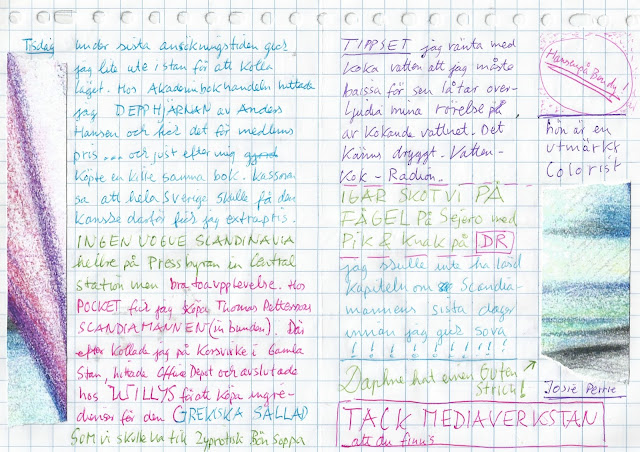 Tisdag under sista ansökningstiden gick
jag lite ute i stan för att kolla
läget. Hos Akademibokhandeln hittade
jag DEPPHJÄRNAN av Anders
Hansen och fick det för medlems
pris... och just efter mig
köpte en kille samma bok. Kassören
sa att hela Sverige skulle få den
kanske därför fick jag extrapris.
INGEN VOGUE SCANDINAVIA
hellre på Pressbyrån in Central
station men bra toaupplevelse. Hos
POCKET fick jag köpa Thomas Petterssons
SCANDIAMANNEN (in bunden). Där
efter kollade jag på Korsvirke i Gamla
Stan, hittade Office Depot och avslutade
hos WILLYS för att köpa ingre-
dienser för den GREKISKA SALLAD
SOM vi skulle ha till Zypriotisk Bön Soppa
TIPPSET jag vänta med
koka vatten att jag måste
paissa för sen låtar över-
ljudia mina rörelse på
av kokande vattnet. Det
känns dryggt. Vatten-
kok - Radion.
IGÅR SKÖT VI PÅ
FÅGEL På Sejerö med
Pik & Knak på DR
jag skulle inte ha läsd
kapiteln om Scandia-
mannens sista dagar
innan jag gick sova
! ! ! ! ! ! ! ! ! !
Daphne hat einen Guten
Strich!
TACK MEDIAVERKSTAN
att du finns
Hansen på Bendy!
hon är en
utmärkt
Colorist
Josie Petrie